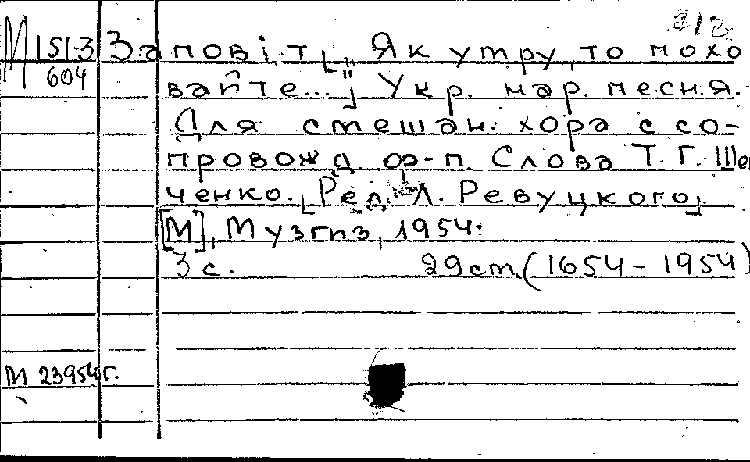 312
М 151-3 Заповіт [„Як утру, то похо
604 вайте..."] Укр. нар. песня.
Для смешан. хора с со-
провожд. ф-п. Слова Т. Г. Шев
ченко. [Ред. Л. Ревуцкого]
[М], Музгиз, 1954.
3 с. 29 cm (1654-1954)
М 23954г.